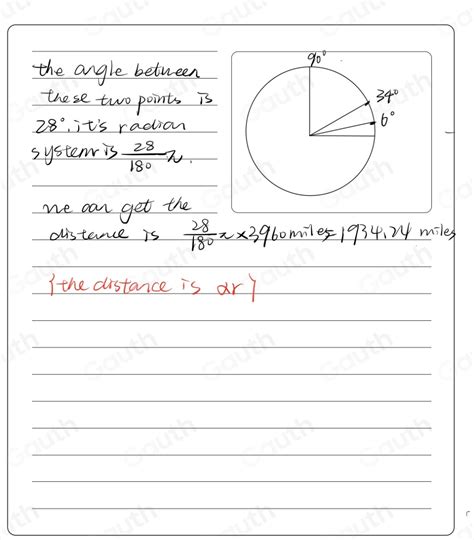 90°
34°
6°
the angle between
these two points is
28°. it's radian
system is 28/180 π.
we can get the
distance is 28/180 π × 3960 miles = 1934.24 miles
{the distance is αr}